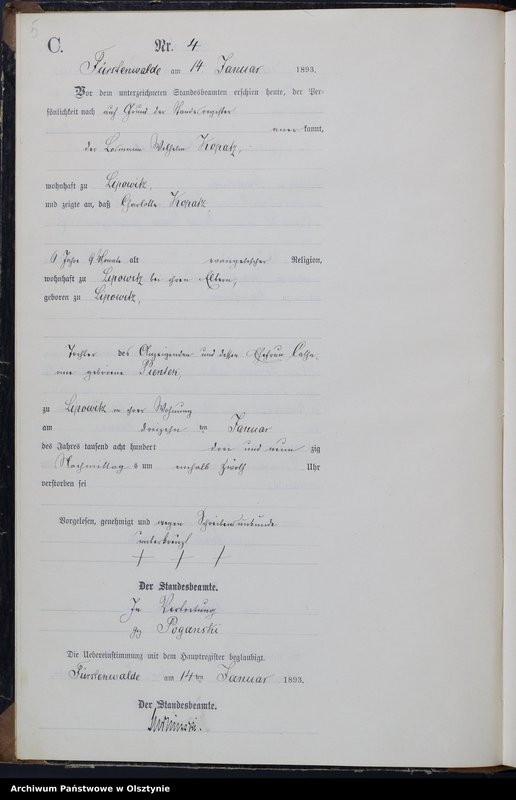 5
C.
Nr. 4
Fürstenwalde am 14. Januar 1893.
Vor dem unterzeichneten Standesbeamten erschien heute, der Per-
sönlichkeit nach auf Grund der Standesregister
anerkannt,
der Losmann Wilhelm Kopatz,
wohnhaft zu Lipowitz,
und zeigte an, daß Charlotte Kopatz,
6 Jahre 9 Monate alt evangelischer Religion,
wohnhaft zu Lipowitz bei ihren Eltern,
geboren zu Lipowitz,
Tochter des Anzeigenden und dessen Ehefrau Catha-
rine geborene Pientek,
zu Lipowitz in ihrer Wohnung
am dreizehn ten Januar
des Jahres tausend acht hundert drei und neun zig
Nachmittag s um einhalb zwölf Uhr
verstorben sei
Vorgelesen, genehmigt und wegen Schreibensunkunde
unterkreuzt
+ + +
Der Standesbeamte.
In Vertretung
gez Poganski
Die Uebereinstimmung mit dem Hauptregister beglaubigt.
Fürstenwalde am 14ten Januar 1893.
Der Standesbeamte.
Archiwum Państwowe w Olsztynie